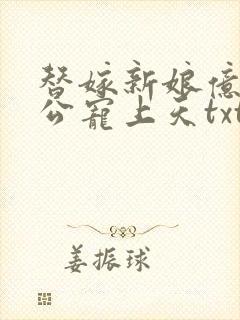 替嫁新娘亿
公宠上天txt
姜振球